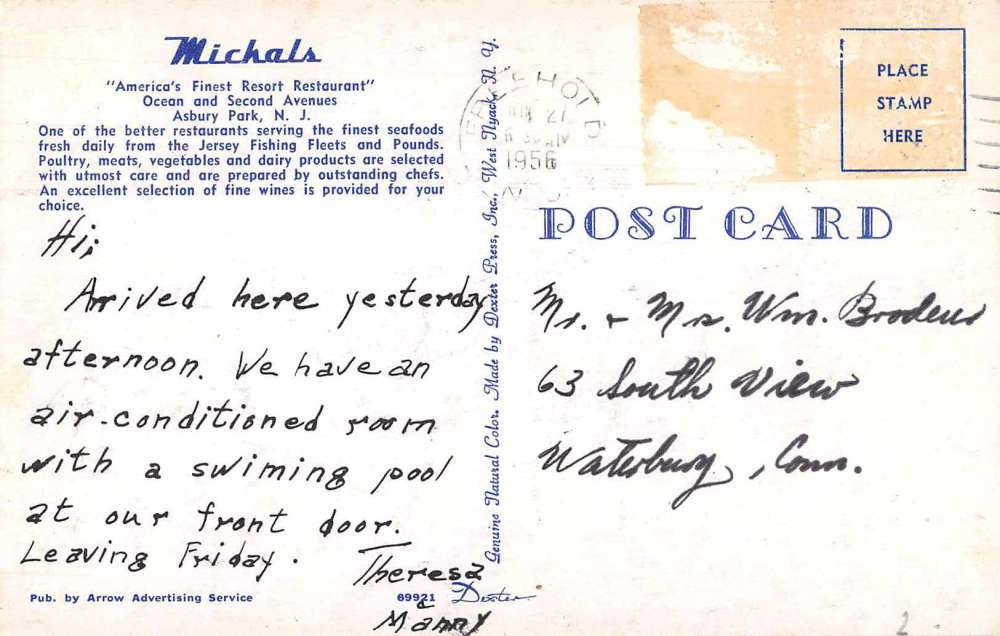 Michals
"America's Finest Resort Restaurant"
Ocean and Second Avenues
Asbury Park, N. J.
One of the better restaurants serving the finest seafoods
fresh daily from the Jersey Fishing Fleets and Pounds.
Poultry, meats, vegetables and dairy products are selected
with utmost care and are prepared by outstanding chefs.
An excellent selection of fine wines is provided for your
choice.
Hi;
Arrived here yesterday
afternoon. We have an
air-conditioned room
with a swiming pool
at our front door.
Leaving Friday.
Theresa
&
Manny
Pub. by Arrow Advertising Service
69921 Dexter
Genuine Natural Color. Made by Dexter Press, Inc., West Nyack, N. Y.
FREEHOLD
27
1956
N.J.
PLACE
STAMP
HERE
POST CARD
Mr. + Mrs. Wm.
63 South View
Waterbury, Conn.
2